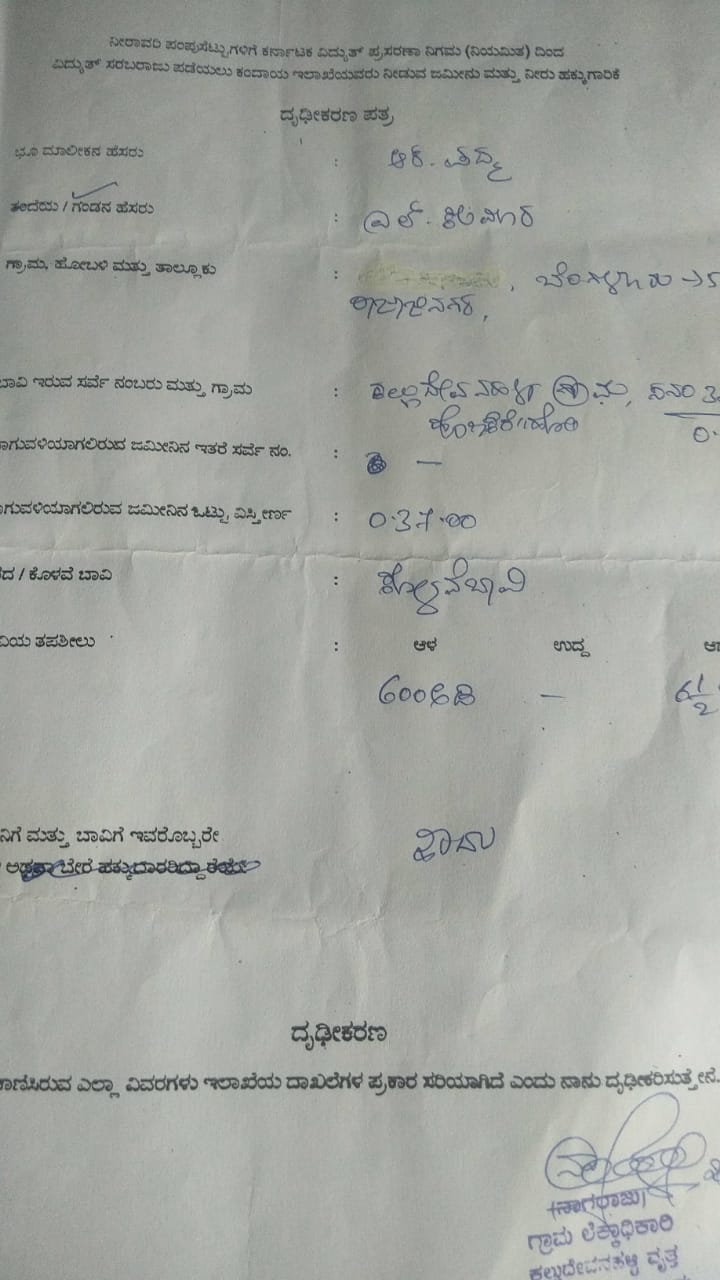 ನೀರಾವರಿ ಪಂಪುಸೆಟ್ಟುಗಳಿಗೆ ಕರ್ನಾಟಕ ವಿದ್ಯುತ್ ಪ್ರಸರಣಾ ನಿಗಮ (ನಿಯಮಿತ) ದಿಂದ
ವಿದ್ಯುತ್ ಸರಬರಾಜು ಪಡೆಯಲು ಕಂದಾಯ ಇಲಾಖೆಯವರು ನೀಡುವ ಜಮೀನು ಮತ್ತು ನೀರು ಹಕ್ಕುಗಾರಿಕೆ
ದೃಢೀಕರಣ ಪತ್ರ
ಭೂ ಮಾಲೀಕನ ಹೆಸರು : ಆರ್. ಪದ್ಮ
ತಂದೆಯ / ಗಂಡನ ಹೆಸರು : ಎಲ್. ಶಿವ
ಗ್ರಾಮ, ಹೋಬಳಿ ಮತ್ತು ತಾಲ್ಲೂಕು : , ಬೆಂಗಳೂರು
ರಾಜಾಜಿನಗರ,
ಬಾವಿ ಇರುವ ಸರ್ವೆ ನಂಬರು ಮತ್ತು ಗ್ರಾಮ : ಕಲ್ಲುದೇವನಹಳ್ಳಿ ಗ್ರಾಮ,
ಾಗುವಳಿಯಾಗಲಿರುವ ಜಮೀನಿನ ಇತರೆ ಸರ್ವೆ ನಂ. : —
ಾಗುವಳಿಯಾಗಲಿರುವ ಜಮೀನಿನ ಒಟ್ಟು ವಿಸ್ತೀರ್ಣ : 0.37.00
ದ / ಕೊಳವೆ ಬಾವಿ : ಕೊಳವೆಬಾವಿ
ವಿಯ ತಪಶೀಲು : ಆಳ ಉದ್ದ
600 ಅಡಿ — 6 1/2
ನಿಗೆ ಮತ್ತು ಬಾವಿಗೆ ಇವರೊಬ್ಬರೇ ಹೌದು
ಅಥವಾ ಬೇರೆ ಹಕ್ಕುದಾರರಿದ್ದಾರೆಯೇ
ದೃಢೀಕರಣ
ಕಾಣಿಸಿರುವ ಎಲ್ಲಾ ವಿವರಗಳು ಇಲಾಖೆಯ ದಾಖಲೆಗಳ ಪ್ರಕಾರ ಸರಿಯಾಗಿದೆ ಎಂದು ನಾನು ದೃಢೀಕರಿಸುತ್ತೇನೆ.
(ನಾಗರಾಜು)
ಗ್ರಾಮ ಲೆಕ್ಕಾಧಿಕಾರಿ
ಕಲ್ಲುದೇವನಹಳ್ಳಿ ವೃತ್ತ